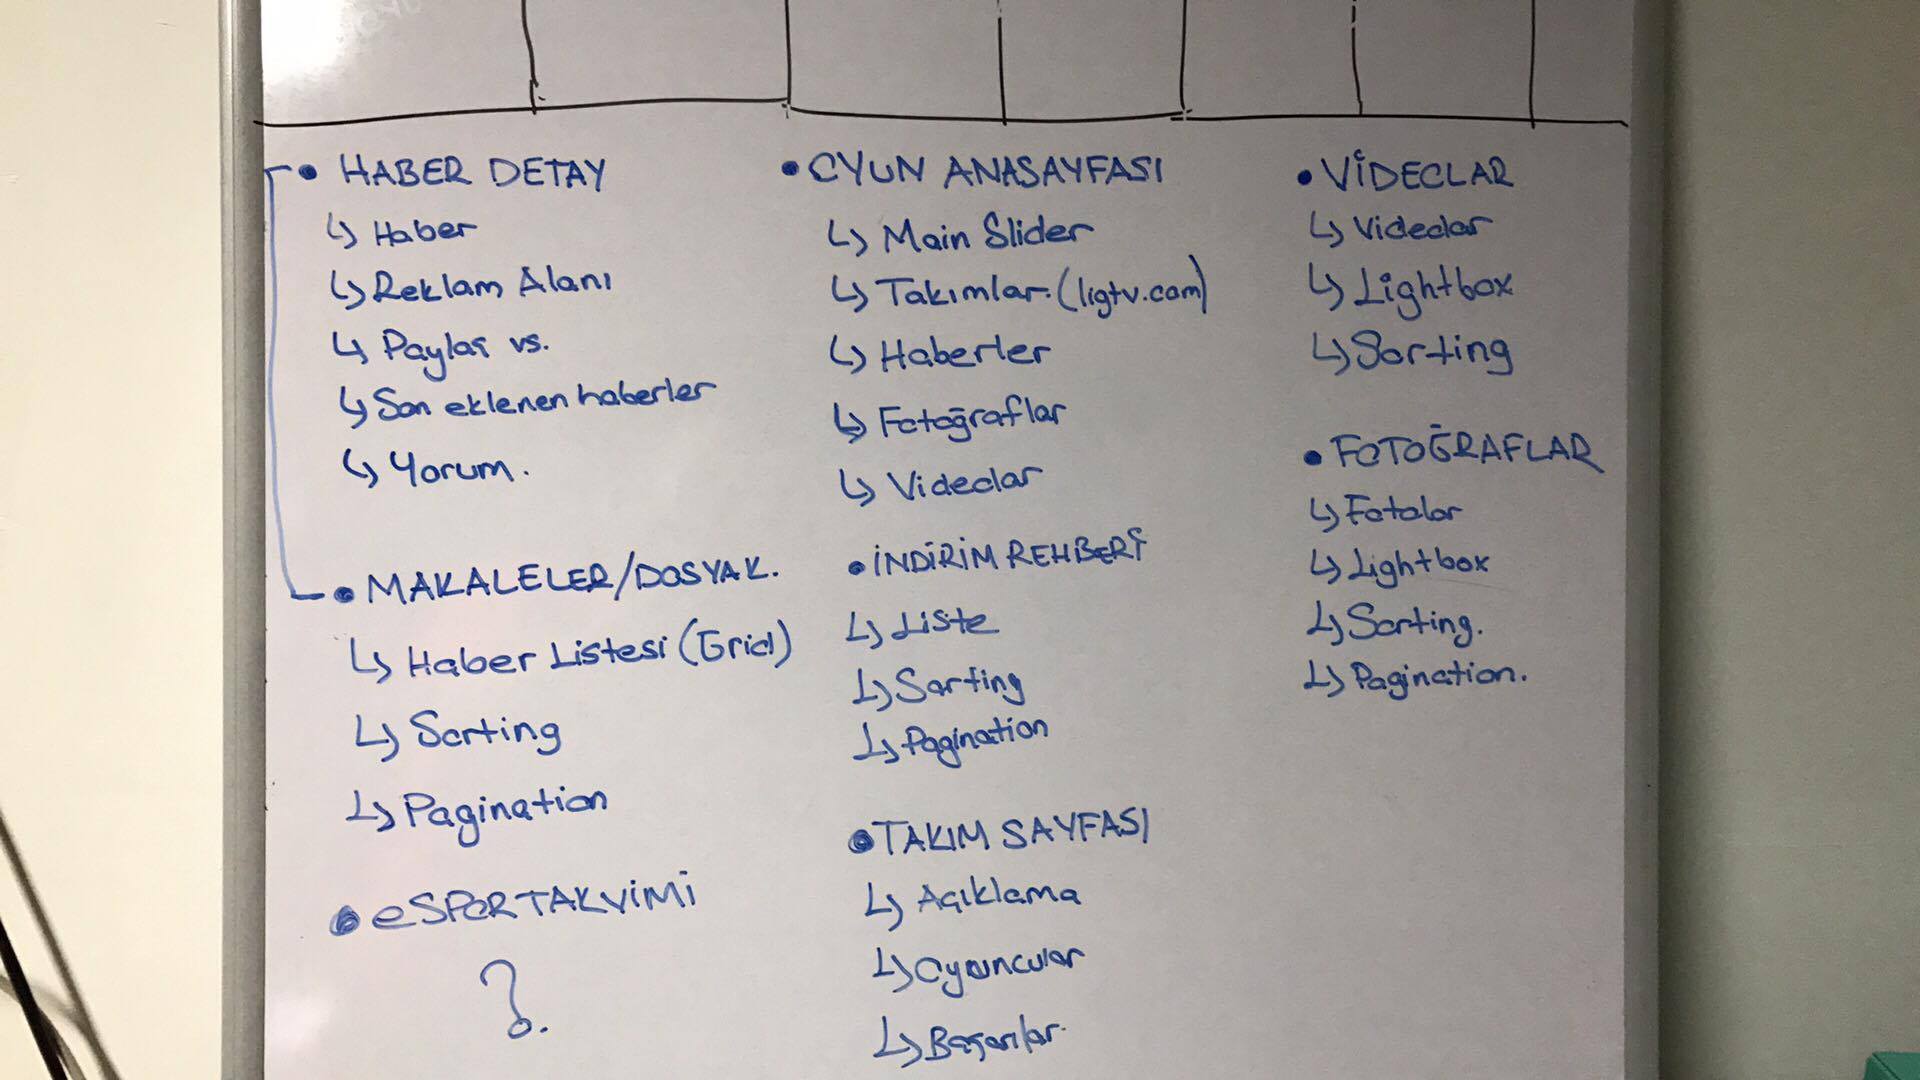 • HABER DETAY
↳ Haber
↳ Reklam Alanı
↳ Paylaş vs.
↳ Son eklenen haberler
↳ Yorum.
• MAKALELER/DOSYAK.
↳ Haber Listesi (Grid)
↳ Sorting
↳ Pagination
• eSPOR TAKVİMİ
?
• OYUN ANASAYFASI
↳ Main Slider
↳ Takımlar. (ligtv.com)
↳ Haberler
↳ Fotoğraflar
↳ Videolar
• İNDİRİM REHBERİ
↳ Liste
↳ Sorting
↳ Pagination
• TAKIM SAYFASI
↳ Açıklama
↳ Oyuncular
↳ Başarılar.
• VİDEOLAR
↳ Videolar
↳ Lightbox
↳ Sorting
• FOTOĞRAFLAR
↳ Fotolar
↳ Lightbox
↳ Sorting.
↳ Pagination.